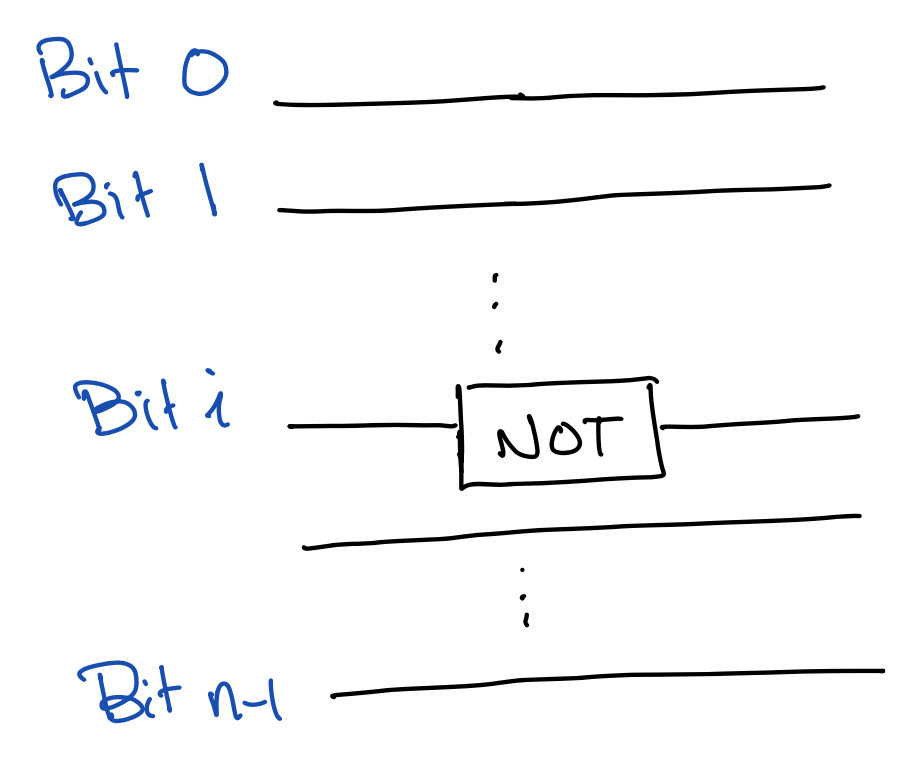 Bit 0
Bit 1
Bit i
NOT
Bit n-1